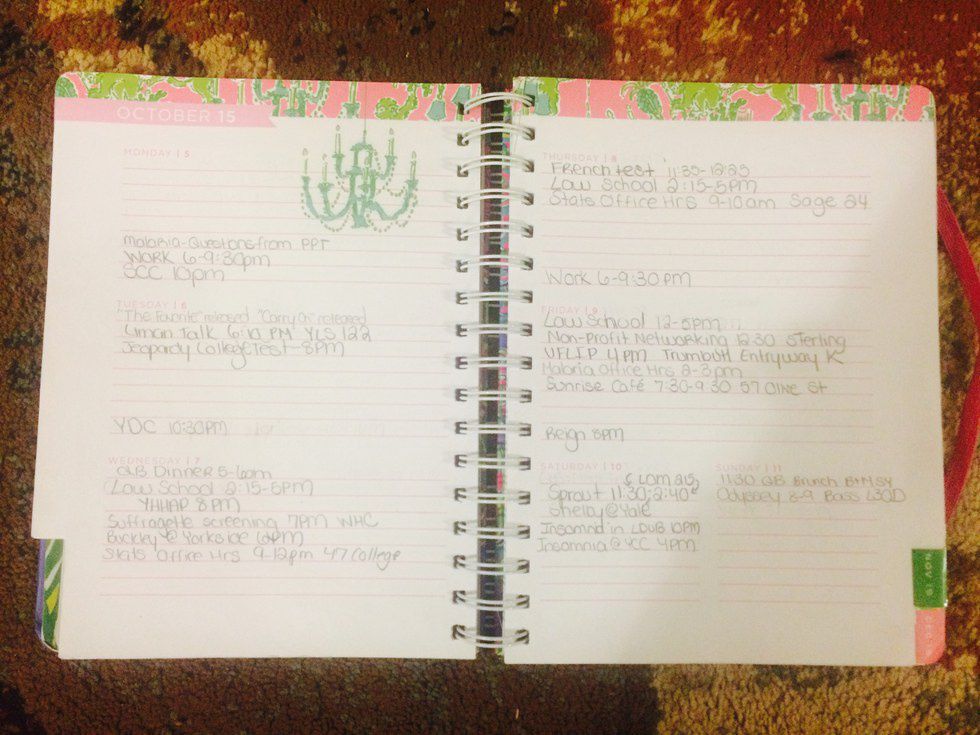 OCTOBER 15
MONDAY | 5
Malaria-Questions from PPT
WORK 6-9:30pm
SCC 10pm
TUESDAY | 6
"The Favorite" released "Carry On" released
Liman Talk 6:10 PM YLS 122
Jeopardy College Test - 8PM
YDC 10:30PM
WEDNESDAY | 7
QB Dinner 5-6pm
Law School 2:15-5PM
YHHAP 8PM
Suffragette screening 7PM WHC
Buckley @ Yorkside 6PM
Stats Office Hrs 9-12pm 47 College
THURSDAY | 8
French test 11:35-12:25
Law School 2:15-5PM
Stats Office Hrs 9-10am Sage 24
Work 6-9:30PM
FRIDAY | 9
Law School 12-5PM
Non-Profit Networking 12:30 Sterling
VFLIP 4PM Trumbull Entryway K
Malaria Office Hrs 2-3pm
Sunrise Café 7:30-9:30 57 Olive St
Reign 8PM
SATURDAY | 10
Sprout 11:30-2:40
Shelby@Yale
Insomnia in LDUB 10PM
Insomnia @ YCC 4PM
SUNDAY | 11
11:30 QB Brunch
Odyssey 8-9 Bass L30D
NOV 15